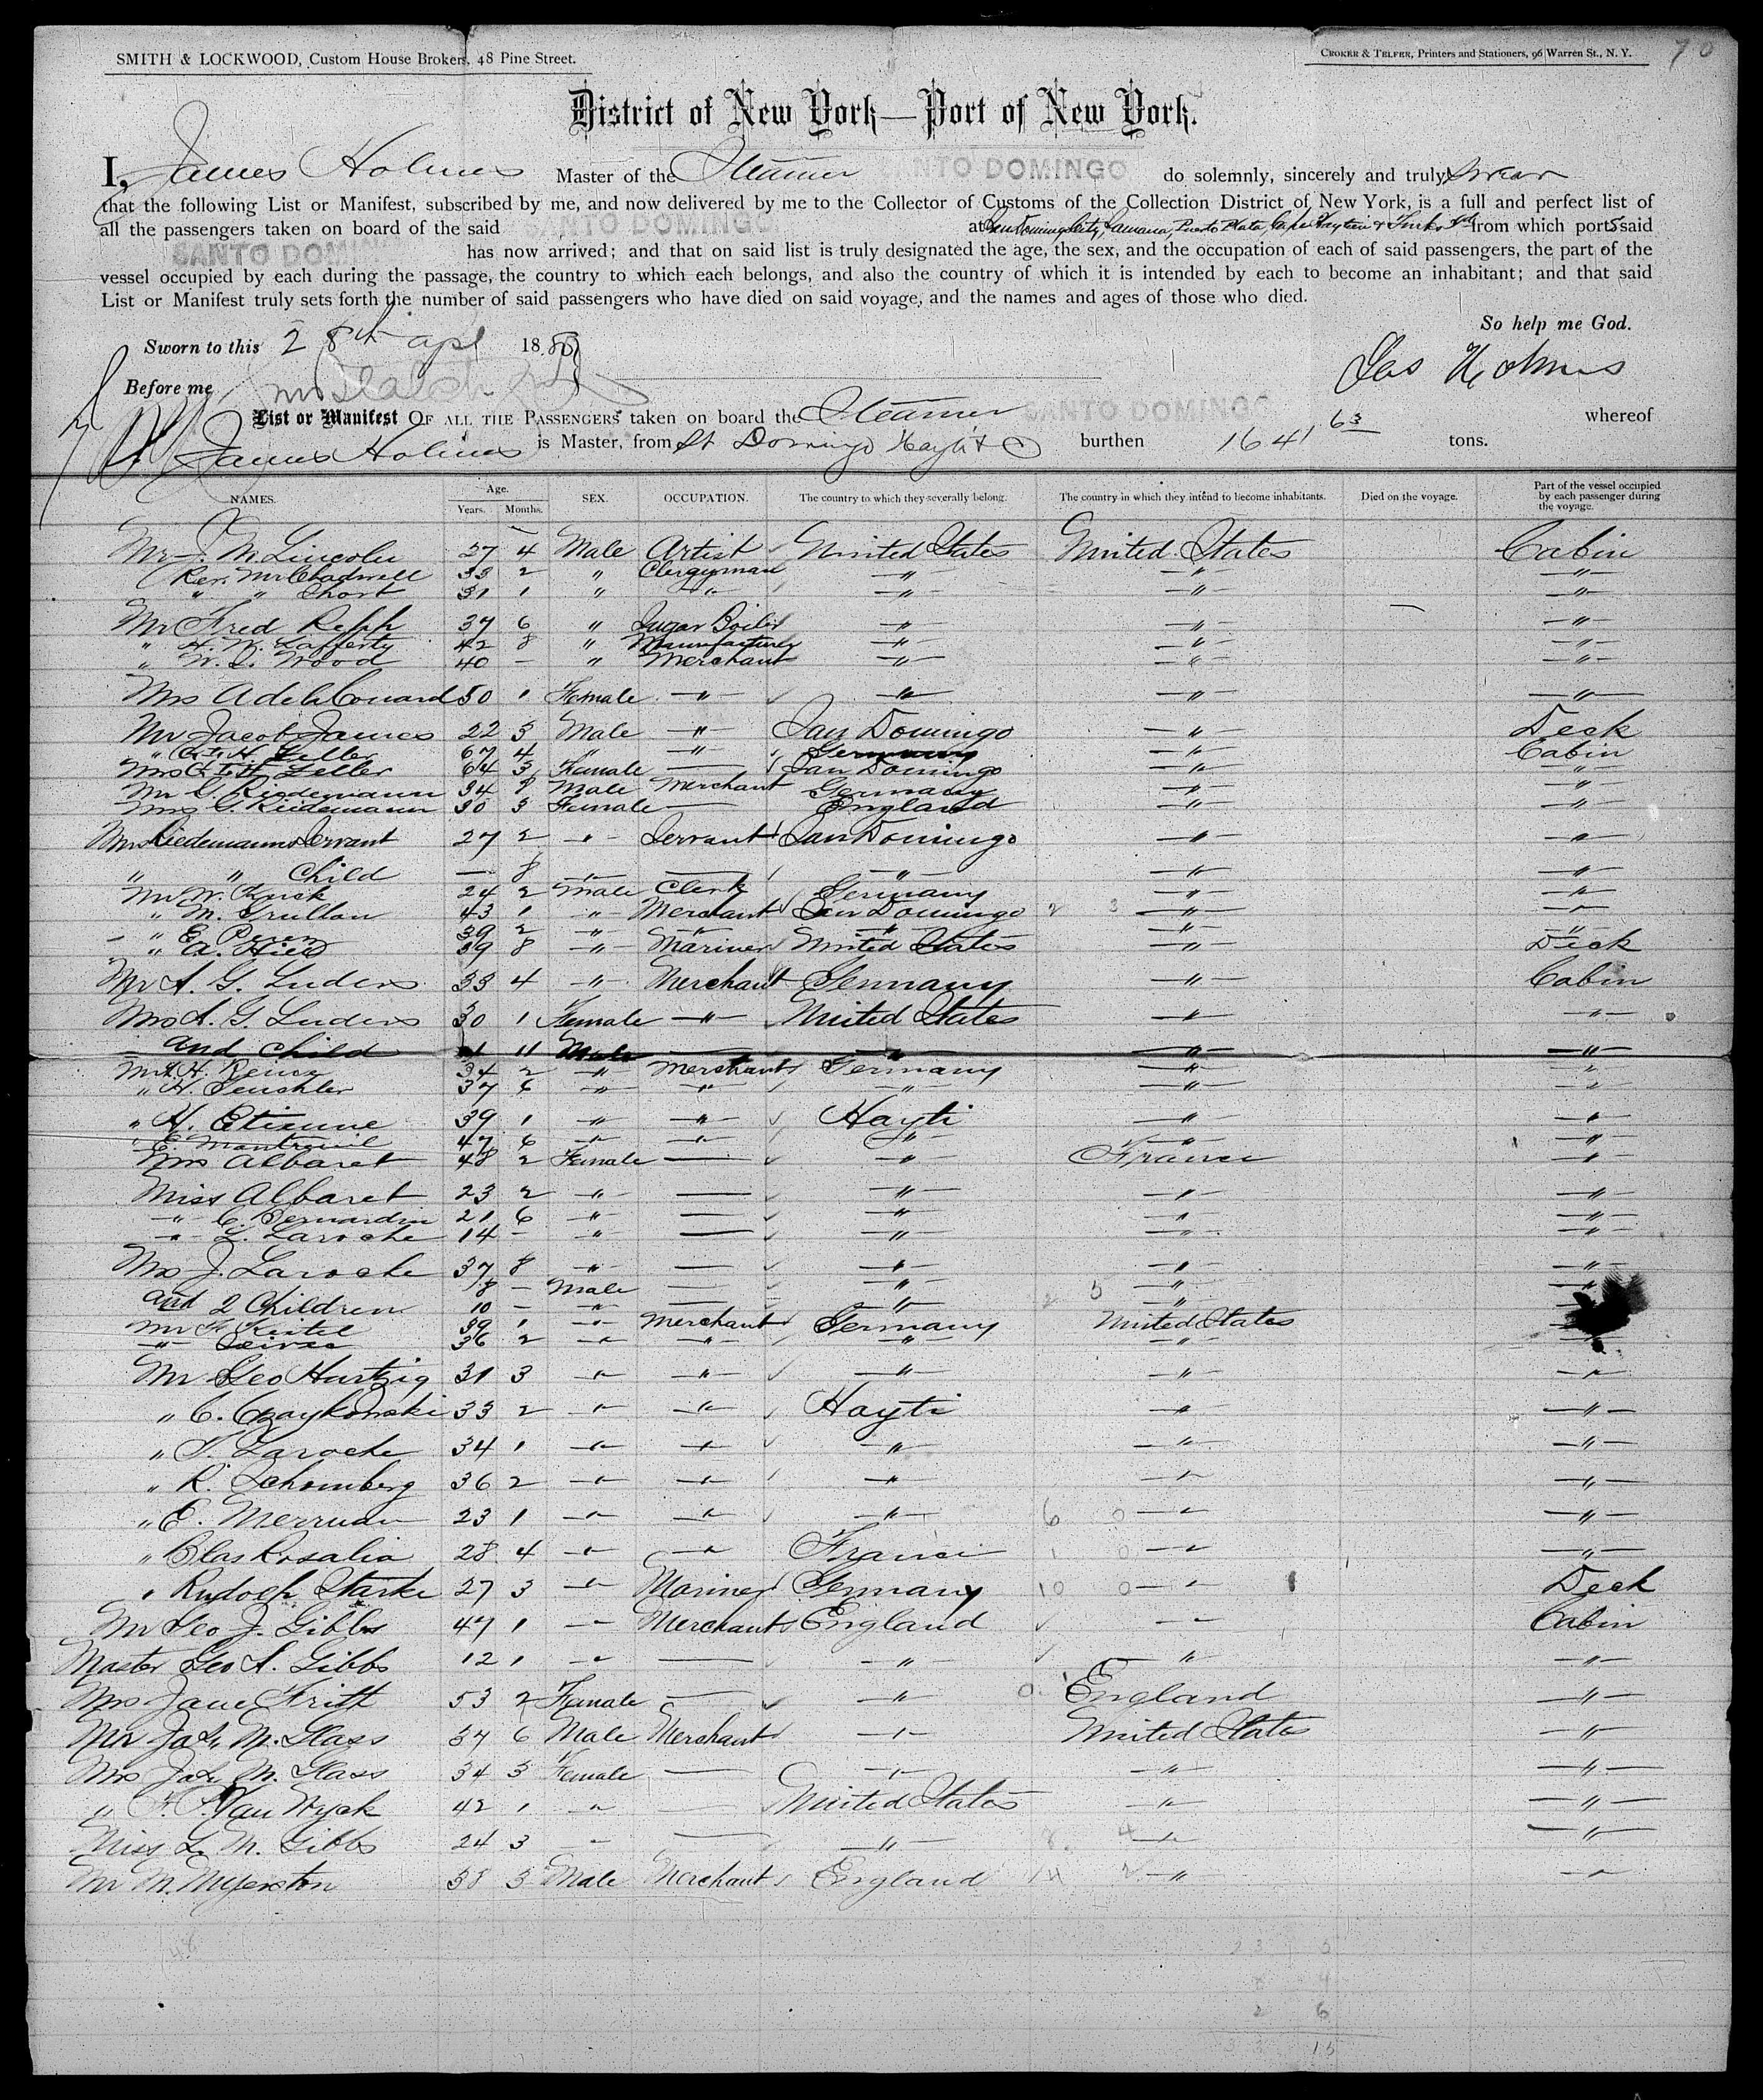 SMITH & LOCKWOOD, Custom House Brokers, 48 Pine Street.
CROKER & TELFER, Printers and Stationers, 96 Warren St., N. Y.
70
District of New York—Port of New York.
I, James Holmes Master of the Steamer SANTO DOMINGO do solemnly, sincerely and truly Swear
that the following List or Manifest, subscribed by me, and now delivered by me to the Collector of Customs of the Collection District of New York, is a full and perfect list of
all the passengers taken on board of the said SANTO DOMINGO at San Domingo City, Samana, Puerto Plata, Cape Haytien & Turks Id from which ports said
SANTO DOMINGO has now arrived; and that on said list is truly designated the age, the sex, and the occupation of each of said passengers, the part of the
vessel occupied by each during the passage, the country to which each belongs, and also the country of which it is intended by each to become an inhabitant; and that said
List or Manifest truly sets forth the number of said passengers who have died on said voyage, and the names and ages of those who died.
So help me God.
Sworn to this 28th apl 188
Jas Holmes
Before me
List or Manifest OF ALL THE PASSENGERS taken on board the Steamer SANTO DOMINGO whereof
James Holmes is Master, from St Domingo Hayti & burthen 1641 63 tons.
NAMES. Age. Years. Months. SEX. OCCUPATION. The country to which they severally belong. The country in which they intend to become inhabitants. Died on the voyage. Part of the vessel occupied by each passenger during the voyage.
Mr J. M. Lincoln 27 4 Male Artist United States United States Cabin
Rev. Mr Chadwell 33 2 " Clergyman " " "
" " Short 31 1 " " " " "
Mr Fred Repp 37 6 " Sugar Boiler " " — "
" H. W. Lafferty 42 8 " Manufacturer " " "
" W. S. Wood 40 - " Merchant " " "
Mrs Adela Couard 50 1 Female " " " "
Mr Jacob James 22 3 Male " San Domingo " Deck
" C. T. H. Zeller 67 4 " " Germany " Cabin
Mrs C. T. H. Zeller 64 3 Female — San Domingo " "
Mr G. Riedemann 34 8 Male Merchant Germany " "
Mrs G. Riedemann 30 3 Female — England " "
Mrs Riedemanns Servant 27 2 " Servant San Domingo " "
" " Child — 8 " — " " "
Mr W. Kuck 24 2 Male Clerk Germany " "
" M. Grullon 43 1 " Merchant San Domingo 2 3 " "
" E. Peren 39 2 " " " " "
" A. Hied 39 8 " Mariner United States " Deck
Mr A. G. Luders 33 4 " Merchant Germany " Cabin
Mrs A. G. Luders 30 1 Female " United States " "
and child 1 11 Male — " " "
Mr H. Reuse 34 2 " Merchant Germany " "
" H. Teuchler 37 6 " " " " "
" H. Etienne 39 1 " " Hayti " "
" E. Montreuil 47 6 " " " " "
Mrs Albaret 48 2 Female — " France "
Miss Albaret 23 2 " — " " "
" C. Bernardin 21 6 " — " " "
" L. Laroche 14 - " — " " "
Mrs J. Laroche 37 8 " — " " "
8 - Male — " 2 5 " "
and 2 Children 10 - " — " " "
Mr F. Keitel 39 1 " Merchant Germany United States
" 36 2 " " " "
Mr Geo Hartzig 31 3 " " " " "
" C. Czaykowski 33 2 " " Hayti " "
" T. Laroche 34 1 " " " " "
" R. Schomberg 36 2 " " " " "
" E. Merruau 23 1 " " " 6 0 " "
" Blas Rosalia 28 4 " " France 1 0 " "
" Rudolph Starke 27 3 " Mariner Germany 10 0 " Deck
Mr Geo J. Gibbs 47 1 " Merchant England " Cabin
Master Geo A. Gibbs 12 1 " — " " "
Mrs Jane Frith 53 2 Female — " 0 1 England "
Mr Jas. M. Glass 37 6 Male Merchant " United States "
Mrs Jas. M. Glass 34 3 Female — " " "
" F. P. Van Wyck 42 1 " United States " "
Miss L. M. Gibbs 24 3 " — " 8. 4 " "
Mr M. Myerston 38 3 Male Merchant England 4 2 " "
48
23 5
8 4
2 6
33 15